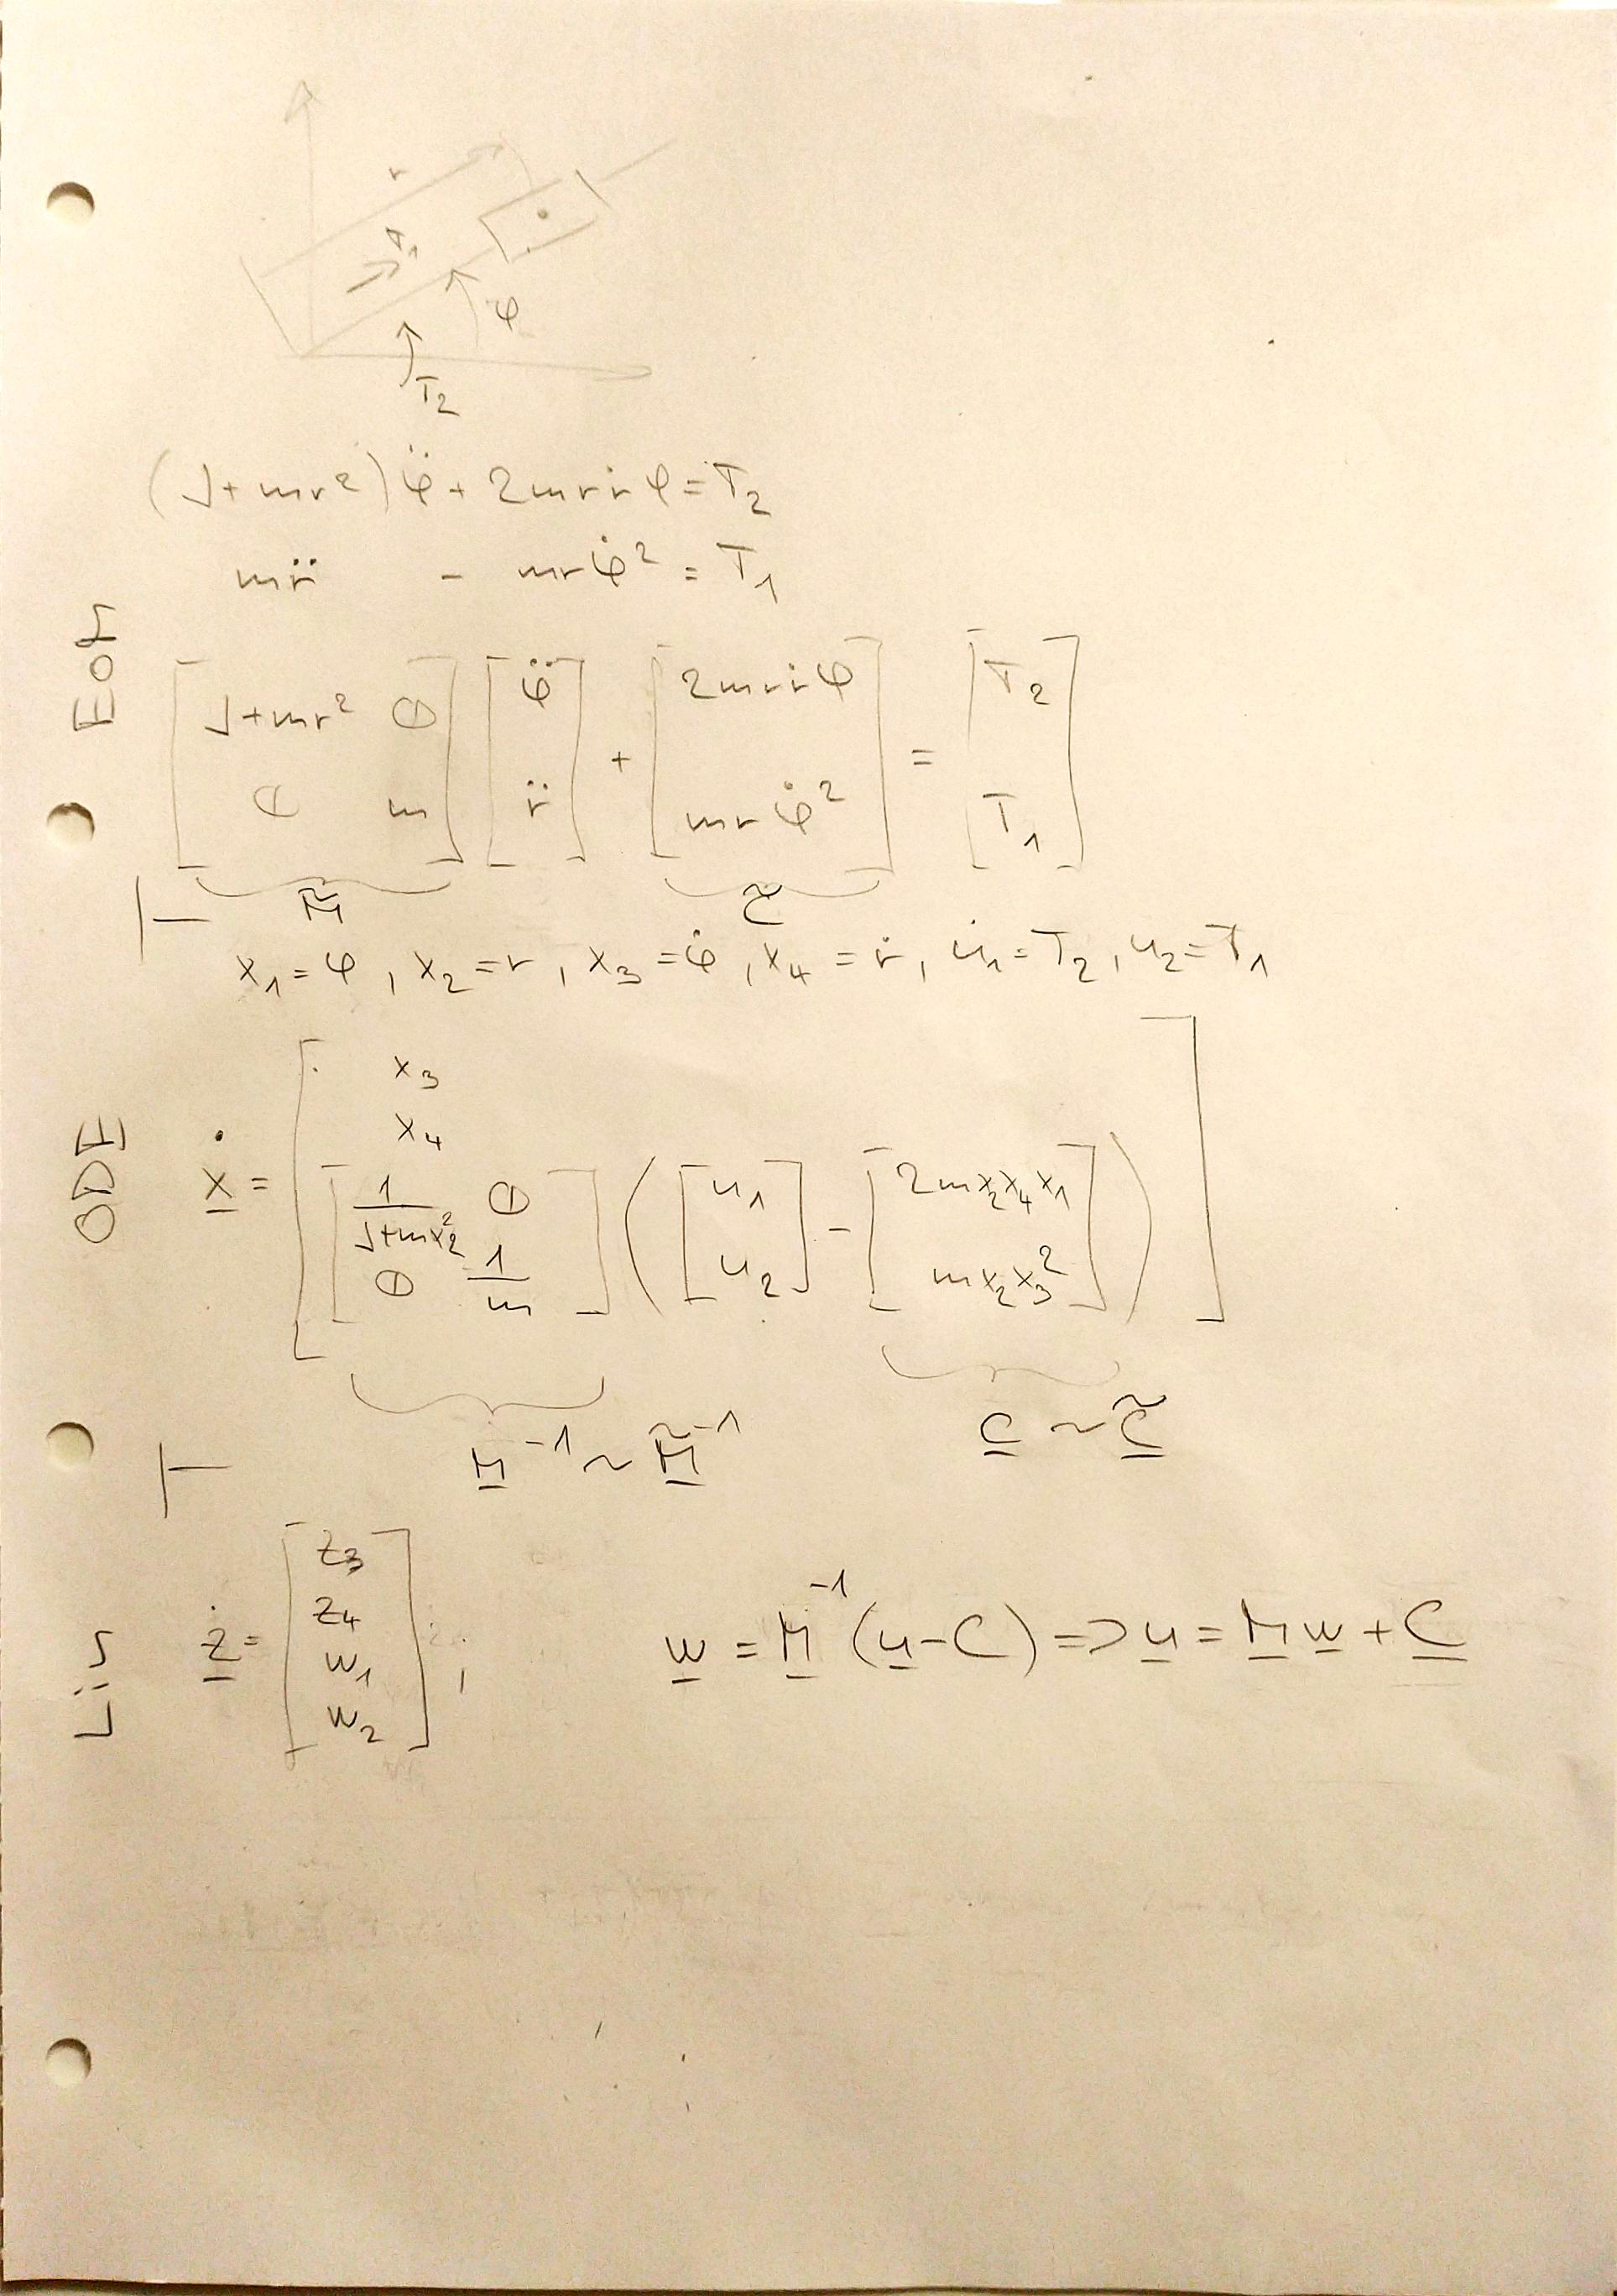 r
T₁
φ
T₂
(J+mr²)φ̈ + 2mrṙφ = T₂
mr̈ - mrφ̇² = T₁
EoM
[J+mr² 0; 0 m] [φ̈; r̈] + [2mrṙφ; mrφ̇²] = [T₂; T₁]
M̃ C̃
x₁=φ, x₂=r, x₃=φ̇, x₄=ṙ, u₁=T₂, u₂=T₁
ODE
ẋ = [x₃; x₄; [1/(J+mx₂²) 0; 0 1/m] ([u₁; u₂] - [2mx₂x₄x₁; mx₂x₃²])]
M⁻¹ ~ M̃⁻¹ C ~ C̃
ż = [z₃; z₄; w₁; w₂] ; w = M⁻¹(u-C) => u = Mw + C